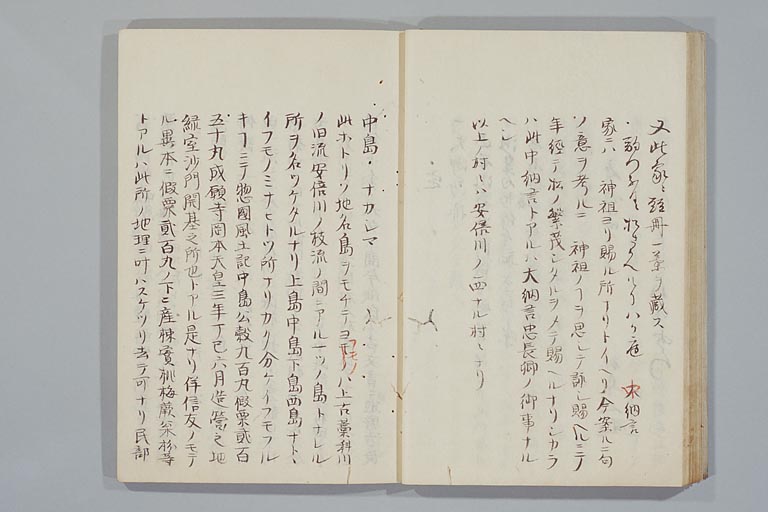 又此家ニ短冊一葉ヲ蔵ス
家ニハ 神祖ヨリ賜ル所ナリトイヘリ今案ルニ句
ノ意ヲ考ルニ 神祖ノヿヲ思シテ詠シ賜ヘルニテ
年経テ松ノ繁茂シタルヲメテ賜ヘルナリシカラ
ハ此中納言トアルハ大納言忠長卿ノ御事ナル
ヘシ
以上ノ村々ハ安倍川ノ西ナル村々ナリ
中島・ナカシマ
此ホトリノ地名島ヲモチテヨフモノハ上古藁科川
ノ旧流安倍川ノ枝流ノ間ニアル一ツノ島トナレル
所ヲ名ツケタルナリ上島中島下島西島ナト
イフモノミナヒトツ所ナリカク分ケイフモフル
キヿニテ惣國風土記中島公穀九百丸假粟貳百
五十丸成願寺岡本天皇三年丁巳六月造營之地
緑室沙門開基之所也トアル是ナリ伴信友ノモテ
ル異本ニ假粟貳百九ノ下ニ産棟實桃梅蕨柴杉等
トアルハ此所ノ地理ニ叶ハスケツリ去テ可ナリ民部